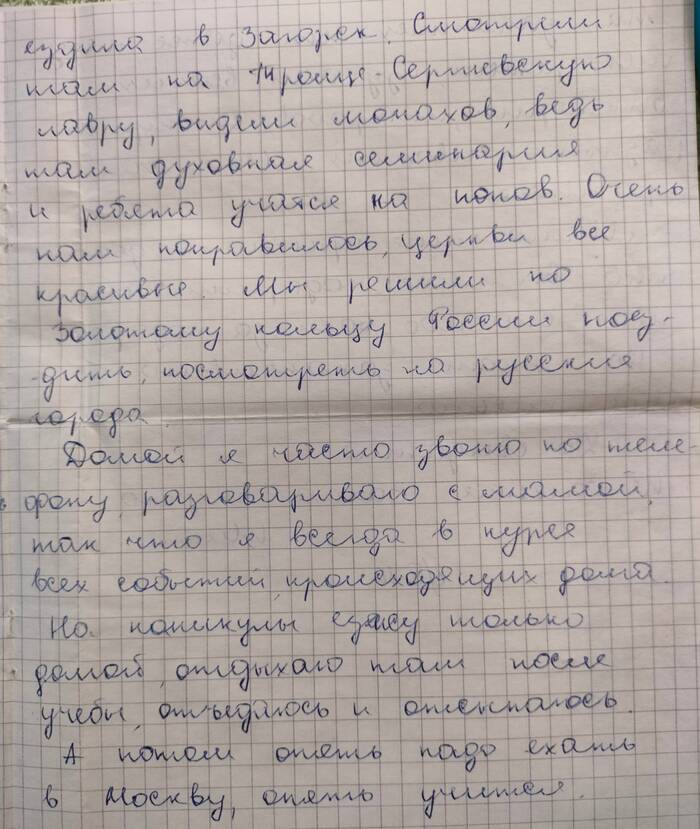 ездила в Загорск. Смотрели
там на Троице-Сергиевскую
лавру, видели монахов, ведь
там духовная семинария
и ребята учатся на попов. Очень
нам понравилось, церкви все
красивые. Мы решили по
Золотому кольцу России поез-
-дить, посмотреть на русские
города.
Домой я часто звоню по теле-
фону, разговариваю с мамой,
так что я всегда в курсе
всех событий, происходящих дома.
На каникулы езжу только
домой, отдыхаю там после
учебы, отъедаюсь и отсыпаюсь.
А потом опять надо ехать
в Москву, опять учится.